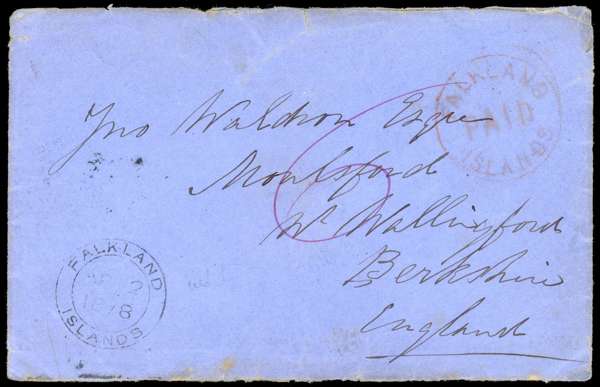 FALKLAND
PAID
ISLANDS
Jno Waldron Esqre
Moulsford
Nr Wallingford
Berkshire
England
6
FALKLAND
1878
ISLANDS